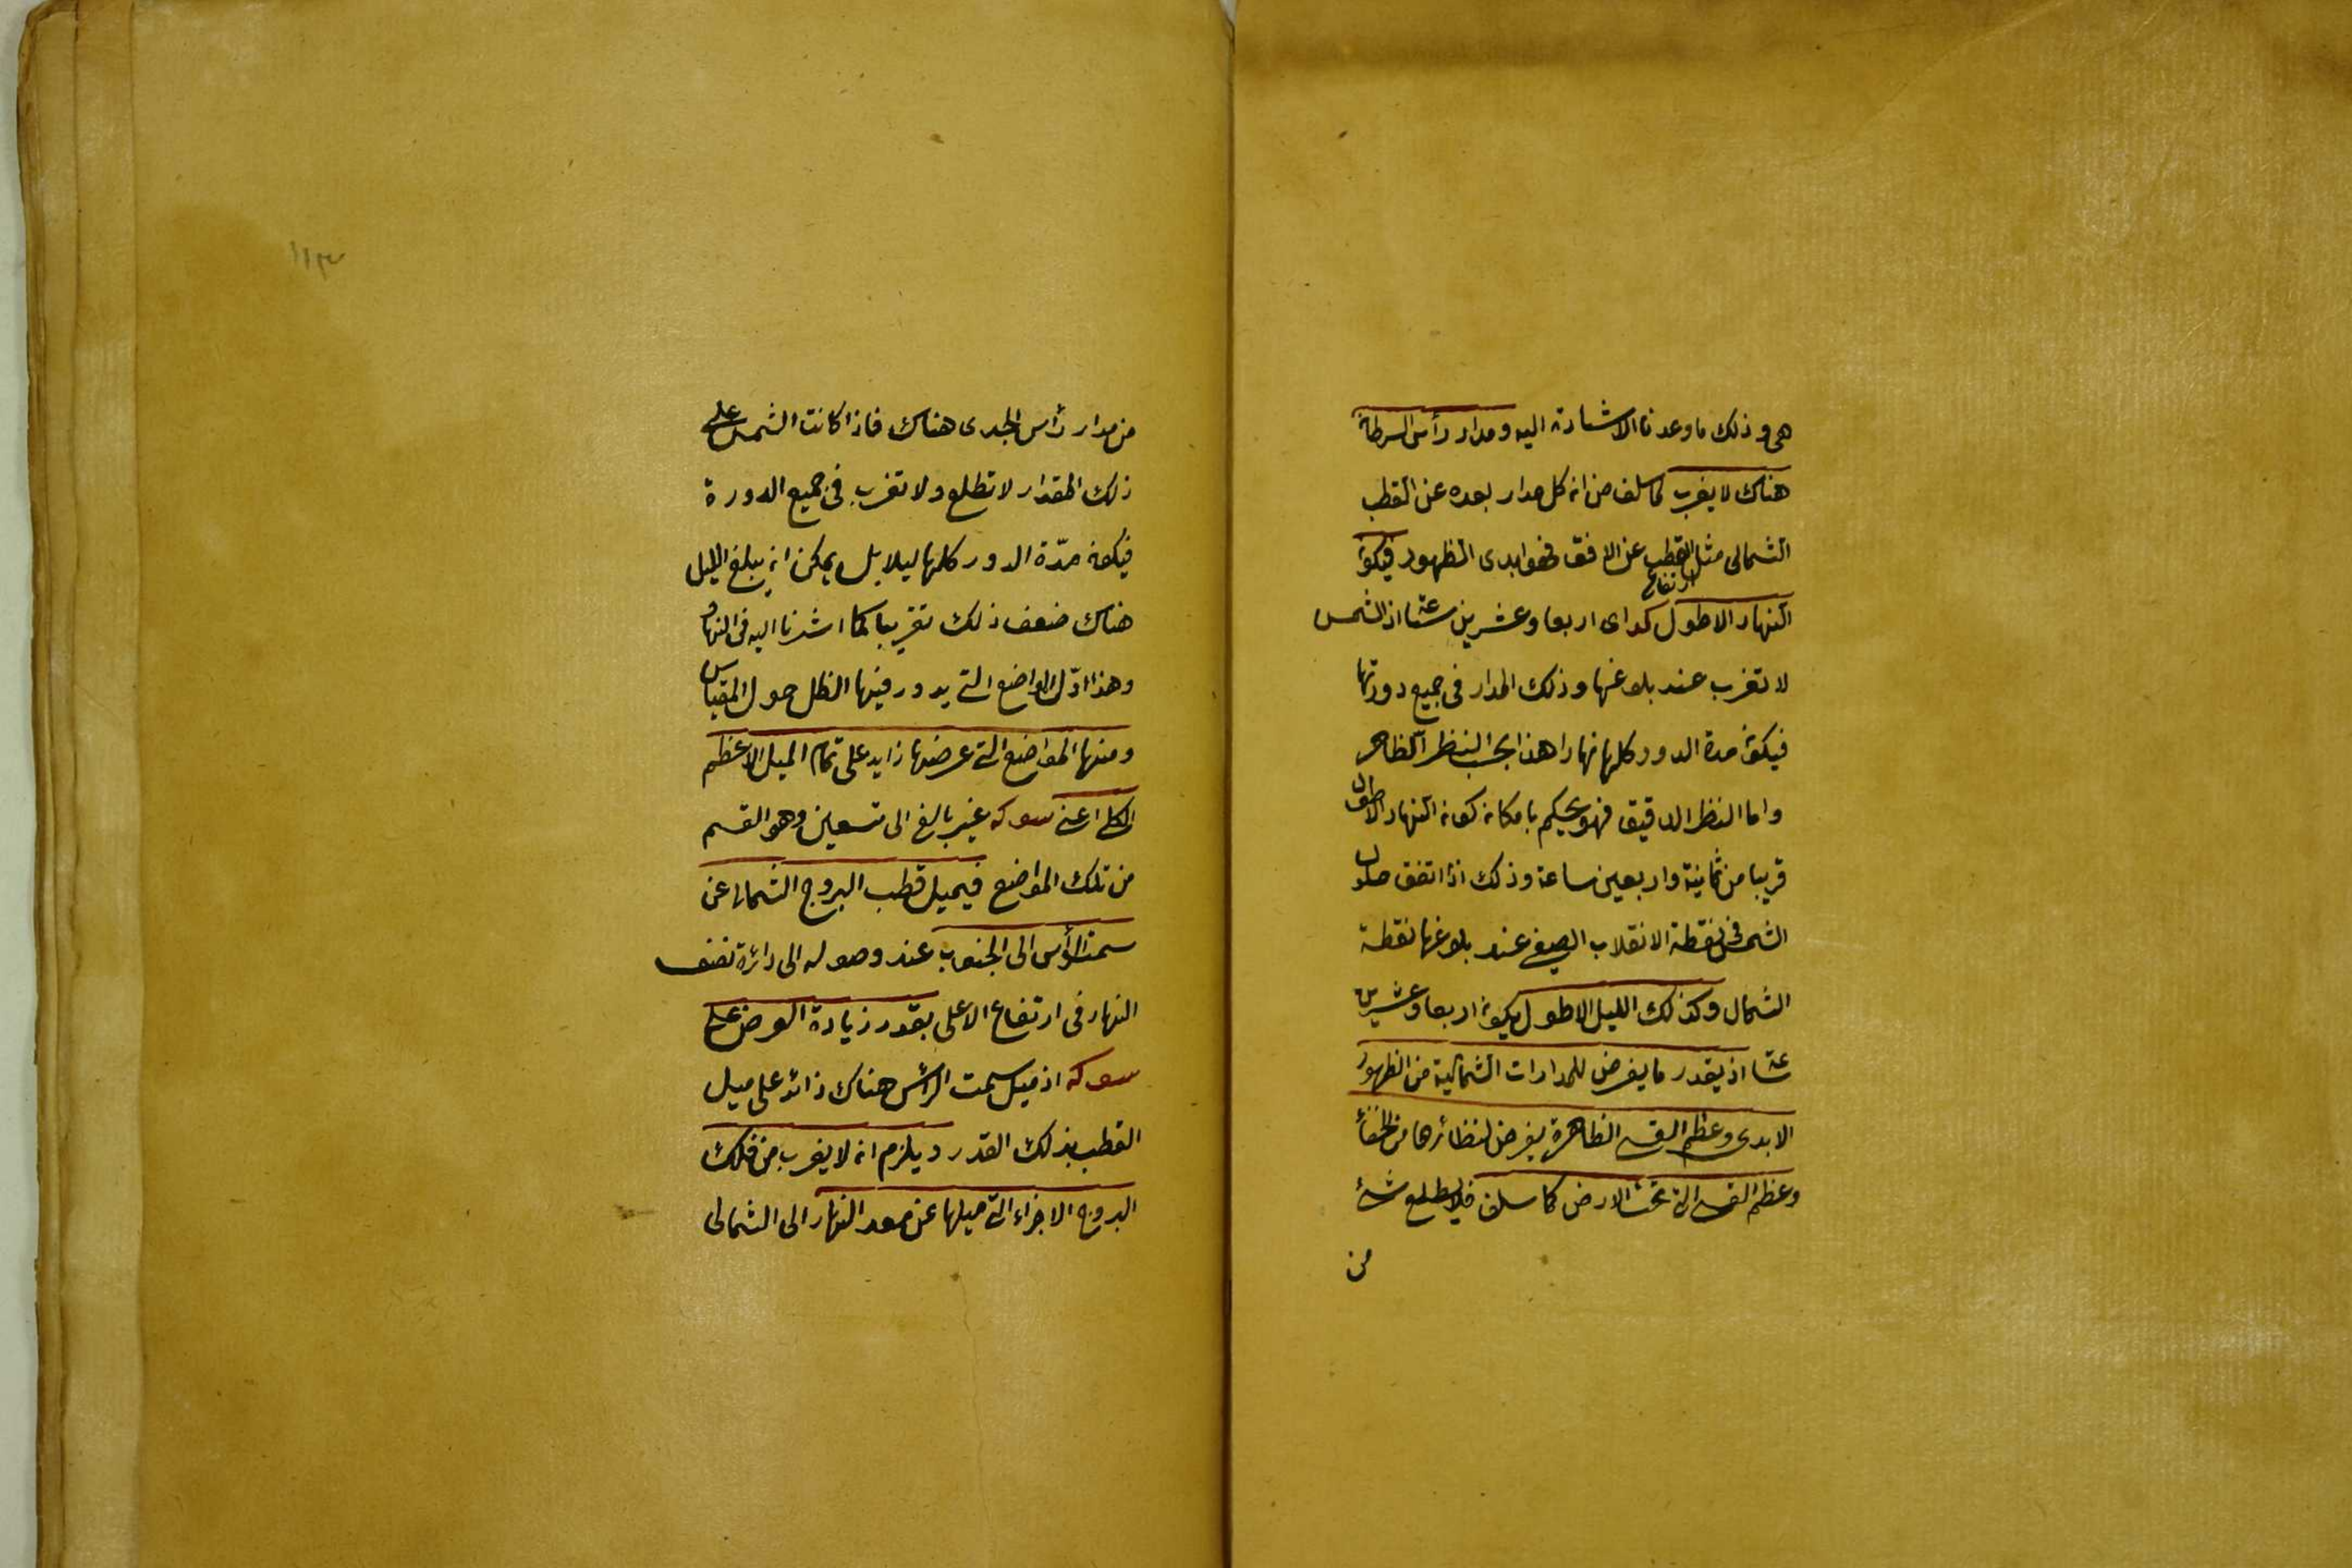 هى و ذلك ما وعدنا الاشارة اليه ومدار رأس السرطان
هناك لا يغرب لما سلف من ان كل مدار بعده عن القطب
الشمالى مثل ارتفاع القطب عن الافق فهو ابدى الظهور فيكون
النهار الاطول كد اى اربعا وعشرين ساعة اذ الشمس
لا تغرب عند بلوغها وذلك المدار فى جميع دورتها
فيكون مدة الدور كلها نهارا هذا بحسب النظر الظاهر
واما النظر الدقيق فهو يحكم بامكان كون النهار الاطول
قريبا من ثمانية واربعين ساعة وذلك اذا اتفق حلول
الشمس فى نقطة الانقلاب الصيفى عند بلوغها نقطة
الشمال وكذلك الليل الاطول يكون اربعا وعشرين
ساعة اذ بقدر ما يفرض للمدارات الشمالية من الظهور
الابدى وعظم القسى الظاهرة يفرض لنظائرها من الخفاء
وعظم القسى التى تحت الارض كما سلف فلا يطلع شئ
من
من مدار رأس الجدى هناك فاذا كانت الشمس على
ذلك المقدار لا تطلع ولا تغرب فى جميع الدورة
فيكون مدّة الدور كلها ليلا بل يمكن ان يبلغ الليل
هناك ضعف ذلك تقريبا كما اشرنا اليه فى النهار
وهذا اوّل المواضع التى يدور فيها الظل حول المقياس
ومنها المواضع التى عرضها زايد على تمام الميل الاعظم
الكلى اعنى سو كه غير بالغ الى تسعين وهو القسم
من تلك المواضع فيميل قطب البروج الشمالى عن
سمت الرأس الى الجنوب عند وصوله الى دائرة نصف
النهار فى ارتفاع الاعلى بقدر زيادة العرض على
سو كه اذ ميل سمت الرأس هناك زائد على ميل
القطب بذلك القدر ويلزم ان لا يغرب من فلك
البروج الاجزاء التى ميلها عن معدل النهار الى الشمالى